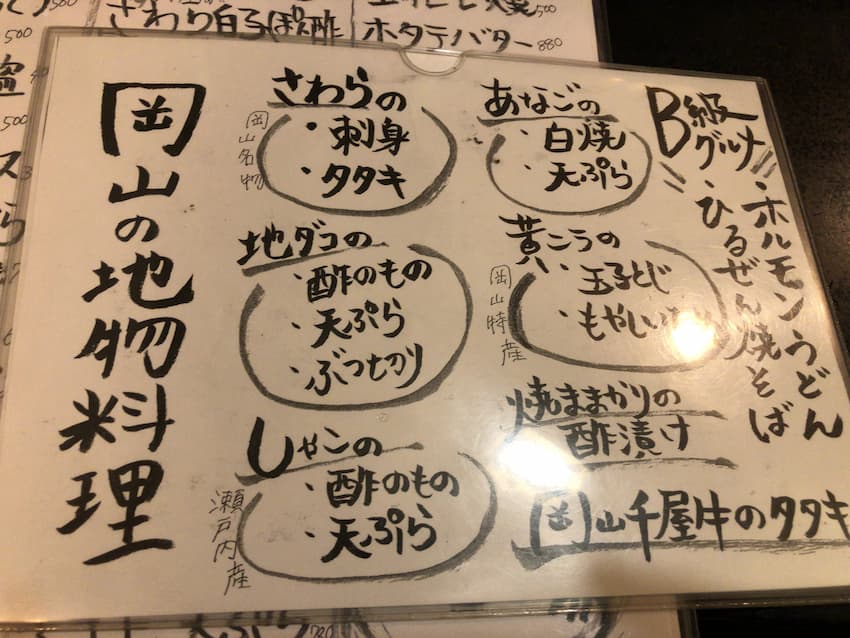 岡山の地物料理
さわらの
岡山名物
・刺身
・タタキ
地ダコの
・酢のもの
・天ぷら
・ぶつ切り
しゃこの
瀬戸内産
・酢のもの
・天ぷら
あなごの
・白焼
・天ぷら
黄にらの
岡山特産
・玉子とじ
・もやしい
焼ままかりの
酢漬け
岡山千屋牛のタタキ
B級グルメ
・ホルモンうどん
・ひるぜん焼そば
さわら白子ぽん酢
ホタテバター 880
500
500
500